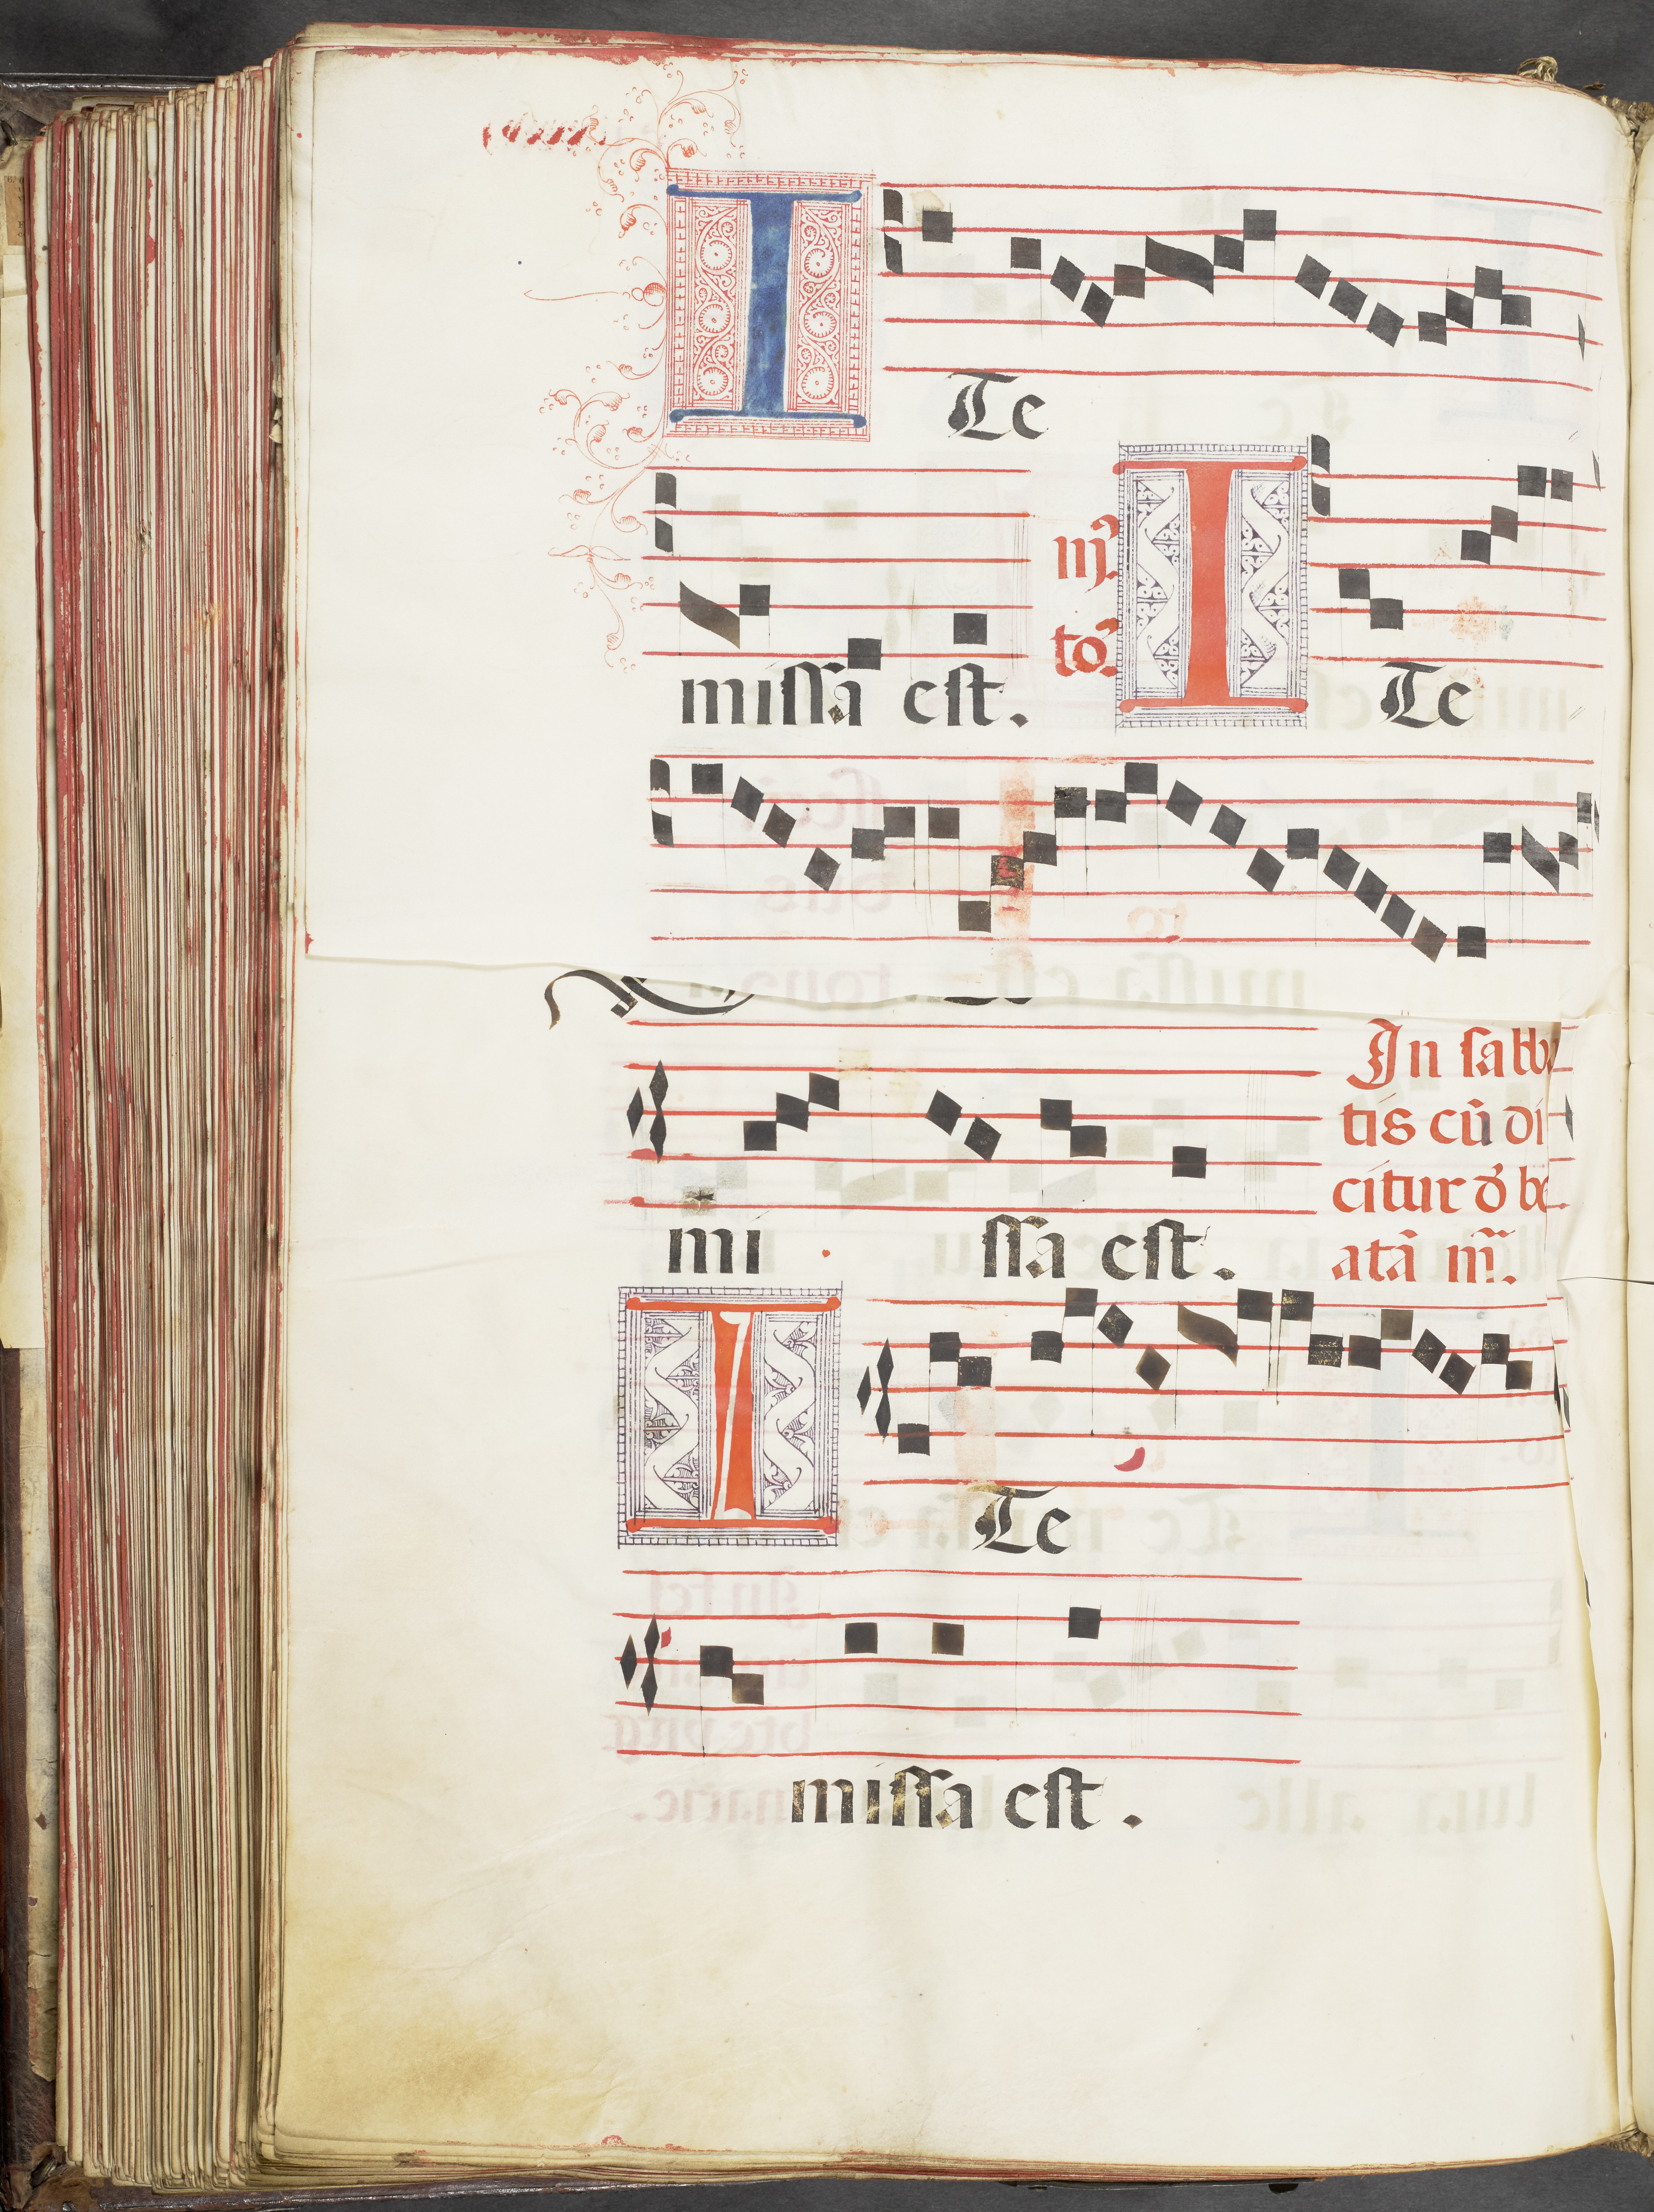 ITe
missa est. IIJ. to. ITe
mi ssa est.
In sabb
tis cū di
citur d' be
atā m̄.
ITe
missa est.